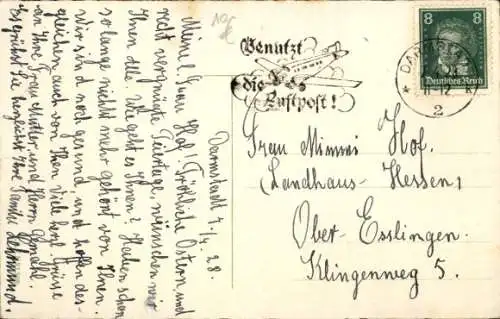 Darmstadt 4./4. 28.
Meine l. Frau Hof! Fröhliche Ostern und
recht vergnügte Feiertage, wünschen wir
Ihnen alle. Wie geht es Ihnen? Haben schon
so lange nichts mehr gehört von Ihnen.
Wir sind noch gesund, und hoffen des-
gleichen auch von Ihnen. Viele herzl. Grüsse
an Ihre Frau Mutter, und Herrn Gemahl.
Es grüsst Sie herzlichst Ihre Familie Lehmund.
10/€
Benutzt
die
Luftpost!
8 8
Deutsches Reich
DARMSTADT
12
* 2
Frau Mimmi Hof.
(Landhaus-Hessen)
Ober-Esslingen.
Klingenweg 5.